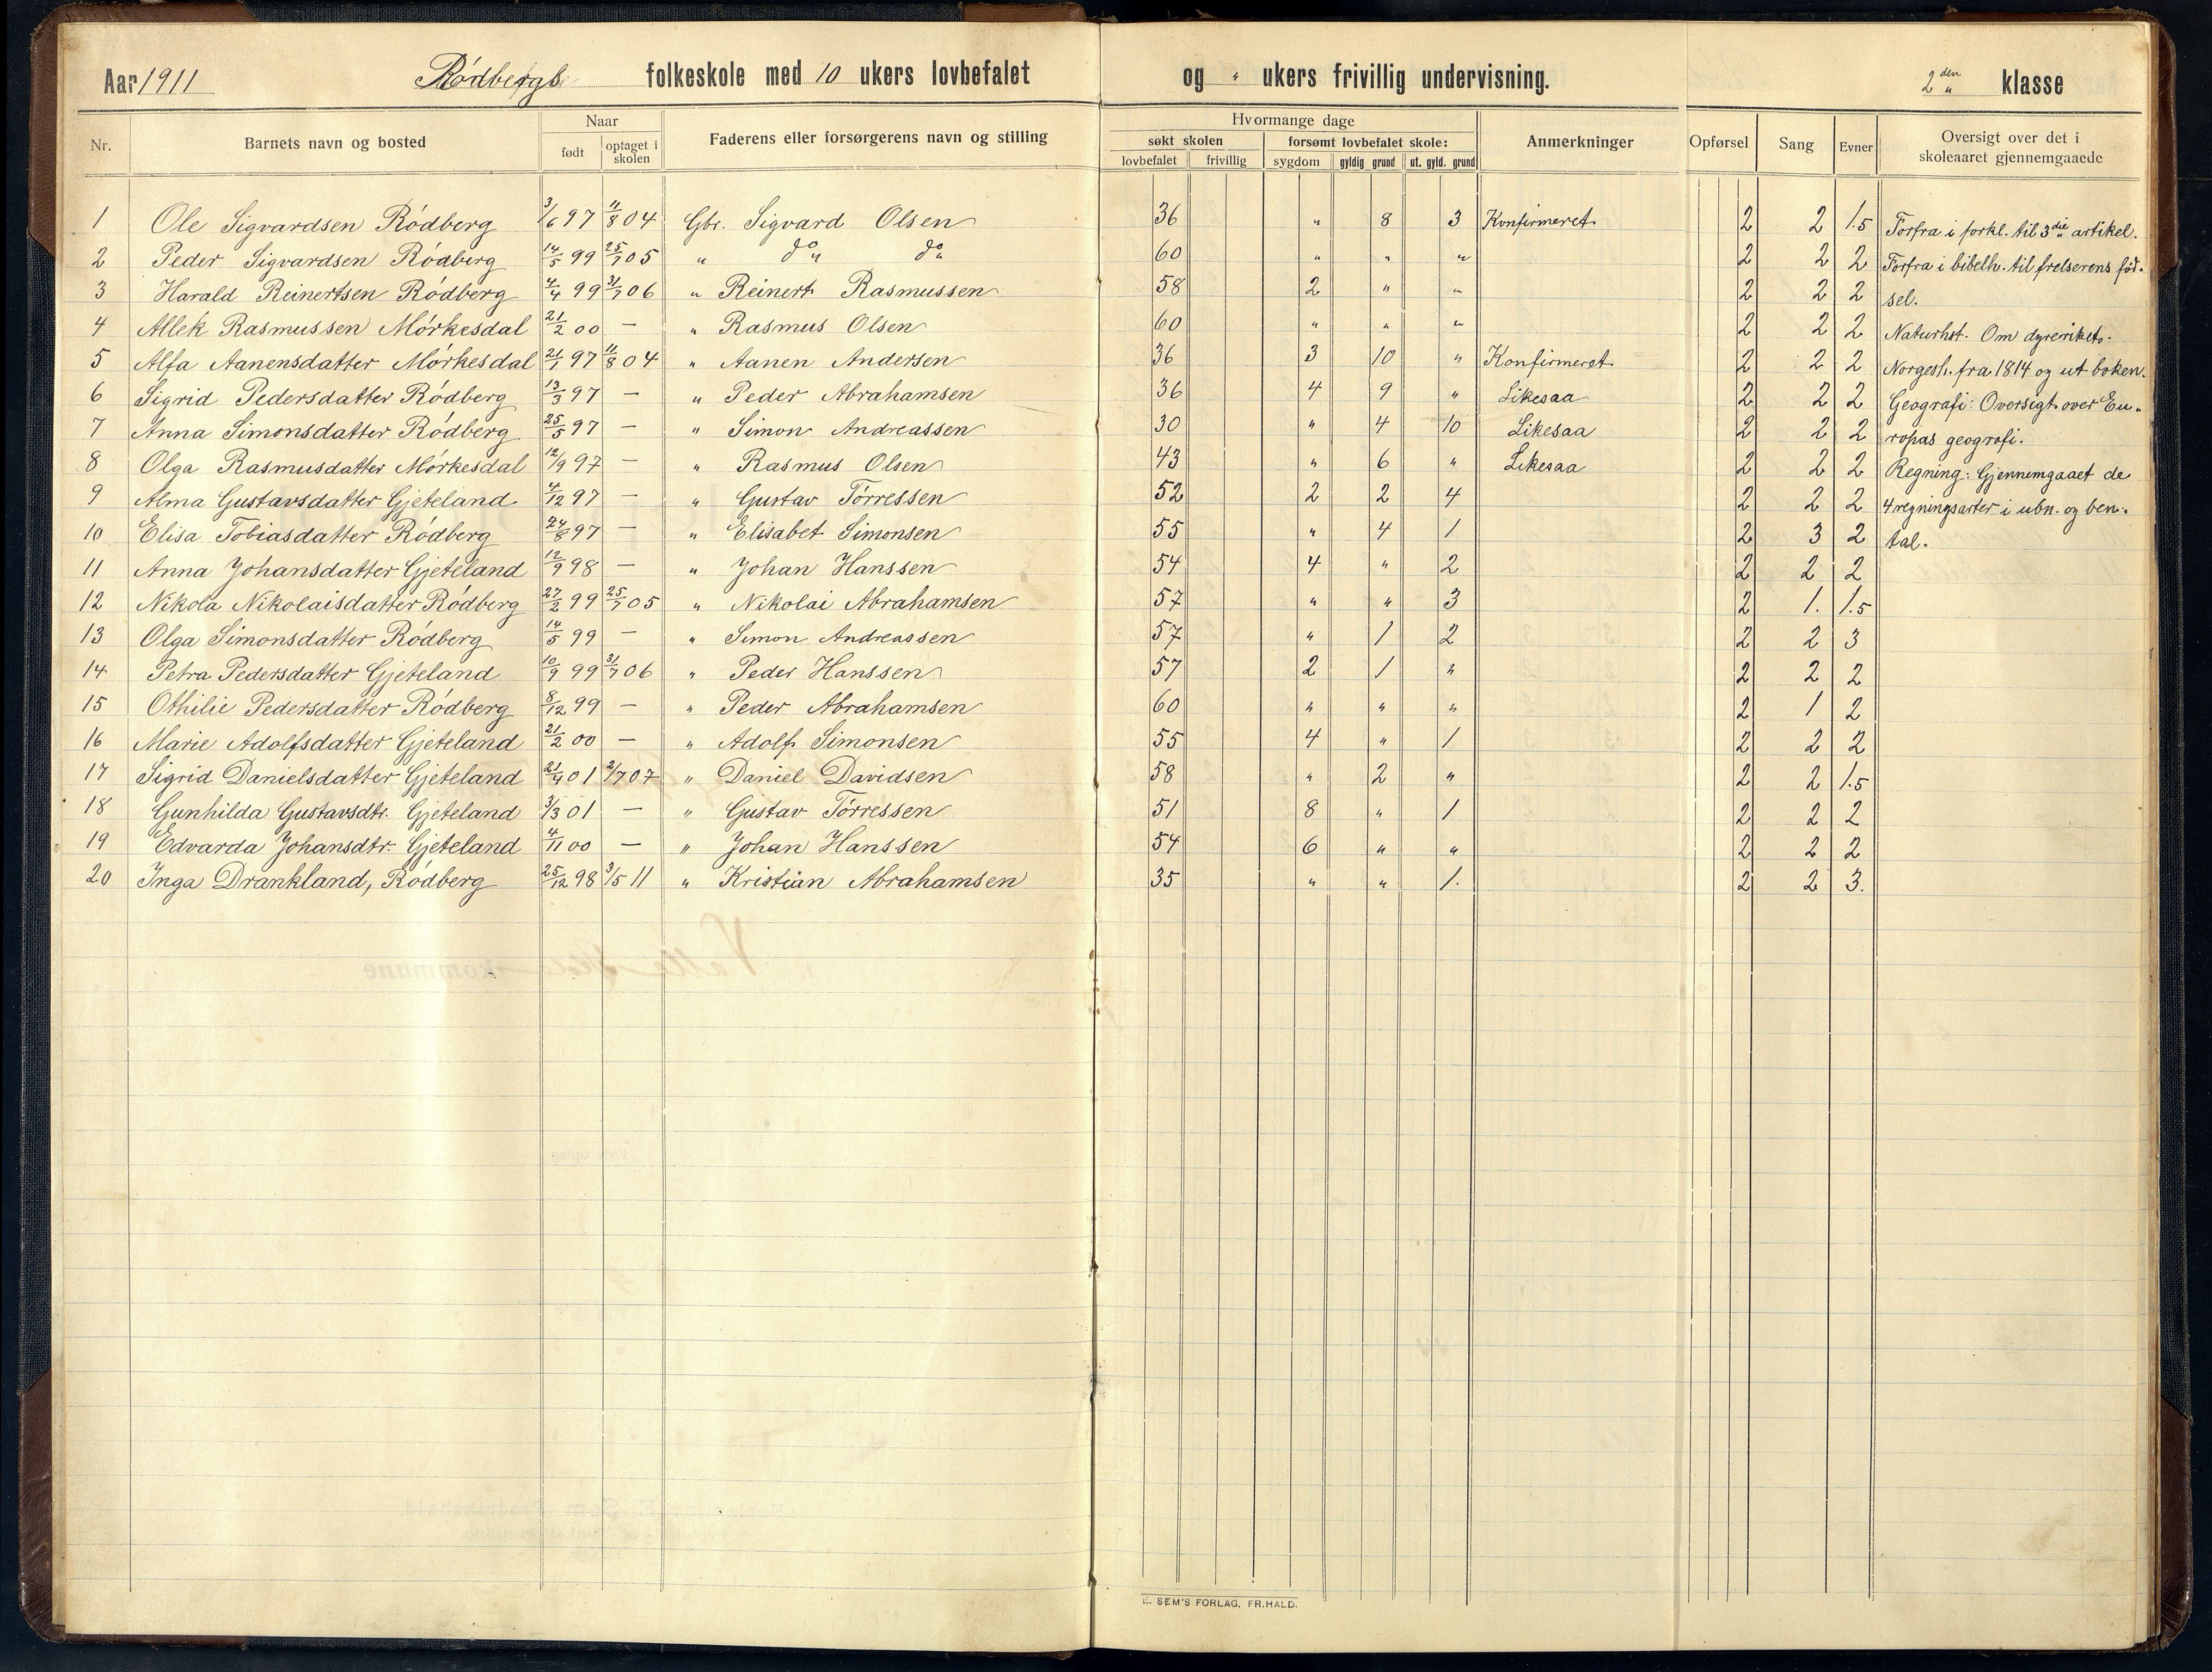 Aar 1911 Rödbergs folkeskole med 10 ukers lovbefalet og " ukers frivillig undervisning. 2den klasse
Nr. Barnets navn og bosted Naar født optaget i skolen Faderens eller forsørgerens navn og stilling Hvormange dage søkt skolen lovbefalet frivillig forsømt lovbefalet skole: sygdom gyldig grund ut. gyld. grund Anmerkninger Opførsel Sang Evner Oversigt over det i skoleaaret gjennemgaaede
1 Ole Sigvardsen Ródberg 3/6 97 11/8 04 Gbr. Sigvard Olsen 36 " 8 3 Konfirmeret 2 2 1.5 Forfra i forkl. til 3die artikel.
2 Peder Sigvardsen Ródberg 14/5 99 25/7 05 " do do 60 " " " 2 2 2 Forfra i bibelh. til frelserens fód-
3 Harald Reinertsen Ródberg 4/4 99 31/7 06 " Reinert Rasmussen 58 2 " " 2 2 2 sel.
4 Allek Rasmussen Mórkesdal 21/2 00 — " Rasmus Olsen 60 " " " 2 2 2 Naturhst. Om dyreriket.
5 Alfa Aanensdatter Mórkesdal 21/1 97 11/8 04 " Aanen Andersen 36 3 10 " Konfirmeret 2 2 2 Norgesh. fra 1814 og ut boken.
6 Sigrid Pedersdatter Ródberg 13/3 97 — " Peder Abrahamsen 36 4 9 " Likesaa 2 2 2 Geografi: Oversigt over Eu-
7 Anna Simonsdatter Ródberg 25/5 97 — " Simon Andreassen 30 " 4 10 Likesaa 2 2 2 ropas geografi.
8 Olga Rasmusdatter Mórkesdal 12/9 97 — " Rasmus Olsen 43 " 6 " Likesaa 2 2 2 Regning: Gjennemgaaet de
9 Alma Gustavsdatter Gjeteland 4/12 97 — " Gustav Tórressen 52 2 2 4 2 2 2 4 regningsarter i ubn. og ben.
10 Elisa Tobiasdatter Ródberg 24/8 97 — " Elisabet Simonsen 55 " 4 1 2 3 2 tal.
11 Anna Johansdatter Gjeteland 12/9 98 — " Johan Hanssen 54 4 " 2 2 2 2
12 Nikola Nikolaisdatter Ródberg 27/2 99 25/7 05 " Nikolai Abrahamsen 57 " " 3 2 1. 1.5
13 Olga Simonsdatter Ródberg 14/5 99 — " Simon Andreassen 57 " 1 2 2 2 3
14 Petra Pedersdatter Gjeteland 10/9 99 31/7 06 " Peder Hanssen 57 2 1 " 2 2 2
15 Othilie Pedersdatter Ródberg 8/12 99 — " Peder Abrahamsen 60 " " " 2 1 2
16 Marie Adolfsdatter Gjeteland 21/2 00 — " Adolf Simonsen 55 4 " 1 2 2 2
17 Sigrid Danielsdatter Gjeteland 21/4 01 2/7 07 " Daniel Davidsen 58 " 2 " 2 2 1.5
18 Gunhilda Gustavsdtr. Gjeteland 3/3 01 — " Gustav Tórressen 51 8 " 1 2 2 2
19 Edvarda Johansdtr. Gjeteland 4/11 00 — " Johan Hanssen 54 6 " " 2 2 2
20 Inga Drankland, Ródberg 25/12 98 3/5 11 " Kristian Abrahamsen 35 " " 1. 2 2 3.
E. SEM'S FORLAG, FR.HALD.